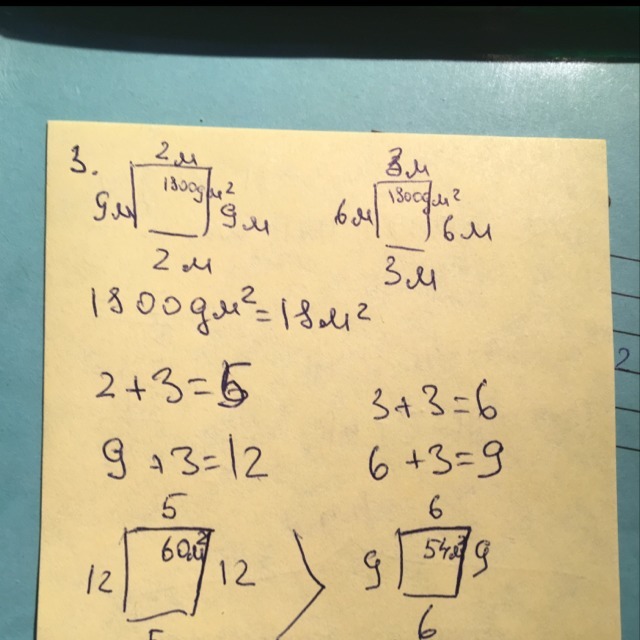 3. 2м 3м
9м 1800дм² 9м 6м 1800дм² 6м
2м 3м
1800дм²=18м²
2+3=5 3+3=6
9+3=12 6+3=9
5 6
12 60м² 12 > 9 54м² 9
5 6
2